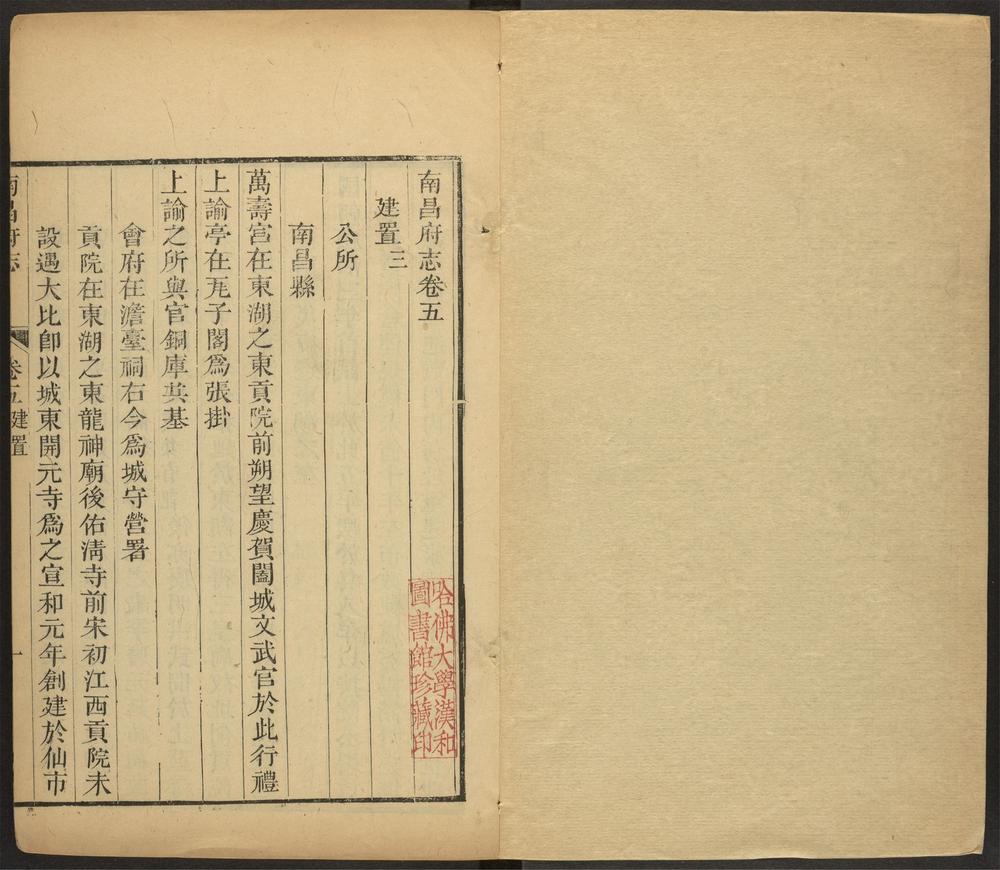 南昌府志卷五
建置三
公所
南昌縣
萬壽宮在東湖之東貢院前朔望慶賀闔城文武官於此行禮
上諭亭在尫子閣爲張掛
上諭之所與官銅庫共基
會府在澹臺祠右今爲城守營署
貢院在東湖之東龍神廟後佑淸寺前宋初江西貢院未
設遇大比卽以城東開元寺爲之宣和元年創建於仙市
南昌府志
卷五建置
一
哈佛大學漢和
圖書館珍藏印